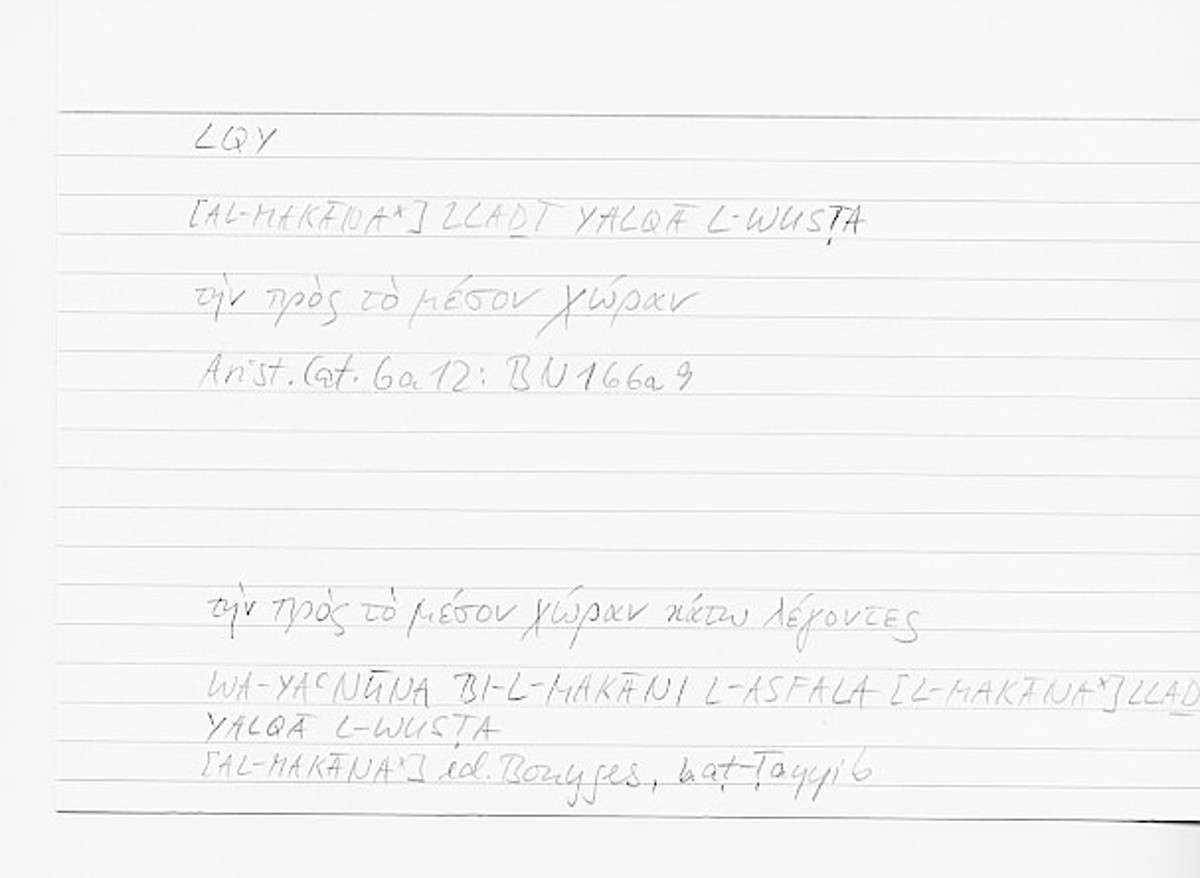 LQY
[AL-MAKĀNA*] LLAḎĪ YALQĀ L-WUSṬA
τὴν πρὸς τὸ μέσον χώραν
Arist. Cat. 6a12: BN 166a9
τὴν πρὸς τὸ μέσον χώραν κάτω λέγοντες
WA-YAʿNŪNA BI-L-MAKĀNI L-ASFALA [L-MAKĀNA*] LLAḎ
YALQĀ L-WUSṬA
[AL-MAKĀNA*] ed. Bouyges, b. aṭ-Ṭayyib